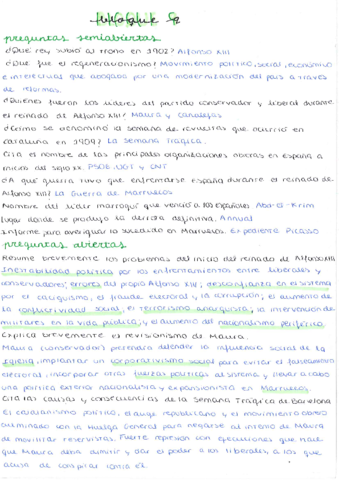 BLOQUE 9
preguntas semiabiertas
¿Qué rey subió al trono en 1902? Alfonso XIII
¿Qué fue el regeneracionismo? Movimiento político, social, económico
e intelectual que abogaba por una modernización del país a través
de reformas.
¿Quiénes fueron los líderes del partido conservador y liberal durante
el reinado de Alfonso XIII? Maura y Canalejas
¿Cómo se denominó la semana de revueltas que ocurrió en
Cataluña en 1909? La Semana Trágica.
Cita el nombre de las principales organizaciones obreras en España a
inicio del siglo XX. PSOE, UGT y CNT
¿A qué guerra tuvo que enfrentarse España durante el reinado de
Alfonso XIII? La Guerra de Marruecos
Nombre del líder marroquí que venció a los españoles Abd el-Krim
lugar donde se produjo la derrota definitiva. Annual
Informe para averiguar lo sucedido en Marruecos. Expediente Picasso
preguntas abiertas
Resume brevemente los problemas del inicio del reinado de Alfonso XIII
Inestabilidad política por los enfrentamientos entre liberales y
conservadores; errores del propio Alfonso XIII; desconfianza en el sistema
por el caciquismo, el fraude electoral y la corrupción; el aumento de
la conflictividad social; el terrorismo anarquista; la intervención de
militares en la vida pública; y el aumento del nacionalismo periférico.
Explica brevemente el revisionismo de Maura.
Maura conservador pretendía defender la influencia social de la
iglesia, implantar un corporativismo social para evitar el falseamiento
electoral, incorporar otras fuerzas políticas al sistema y llevar a cabo
una política exterior nacionalista y expansionista en Marruecos.
Cita las causas y consecuencias de la Semana Trágica de Barcelona
El catalanismo político, el auge republicano y el movimiento obrero
culminado con la Huelga General para negarse al intento de Maura
de movilizar reservistas. Fuerte represión con ejecuciones que hace
que Maura deba dimitir y dar el poder a los liberales, a los que
acusa de conspirar contra él.